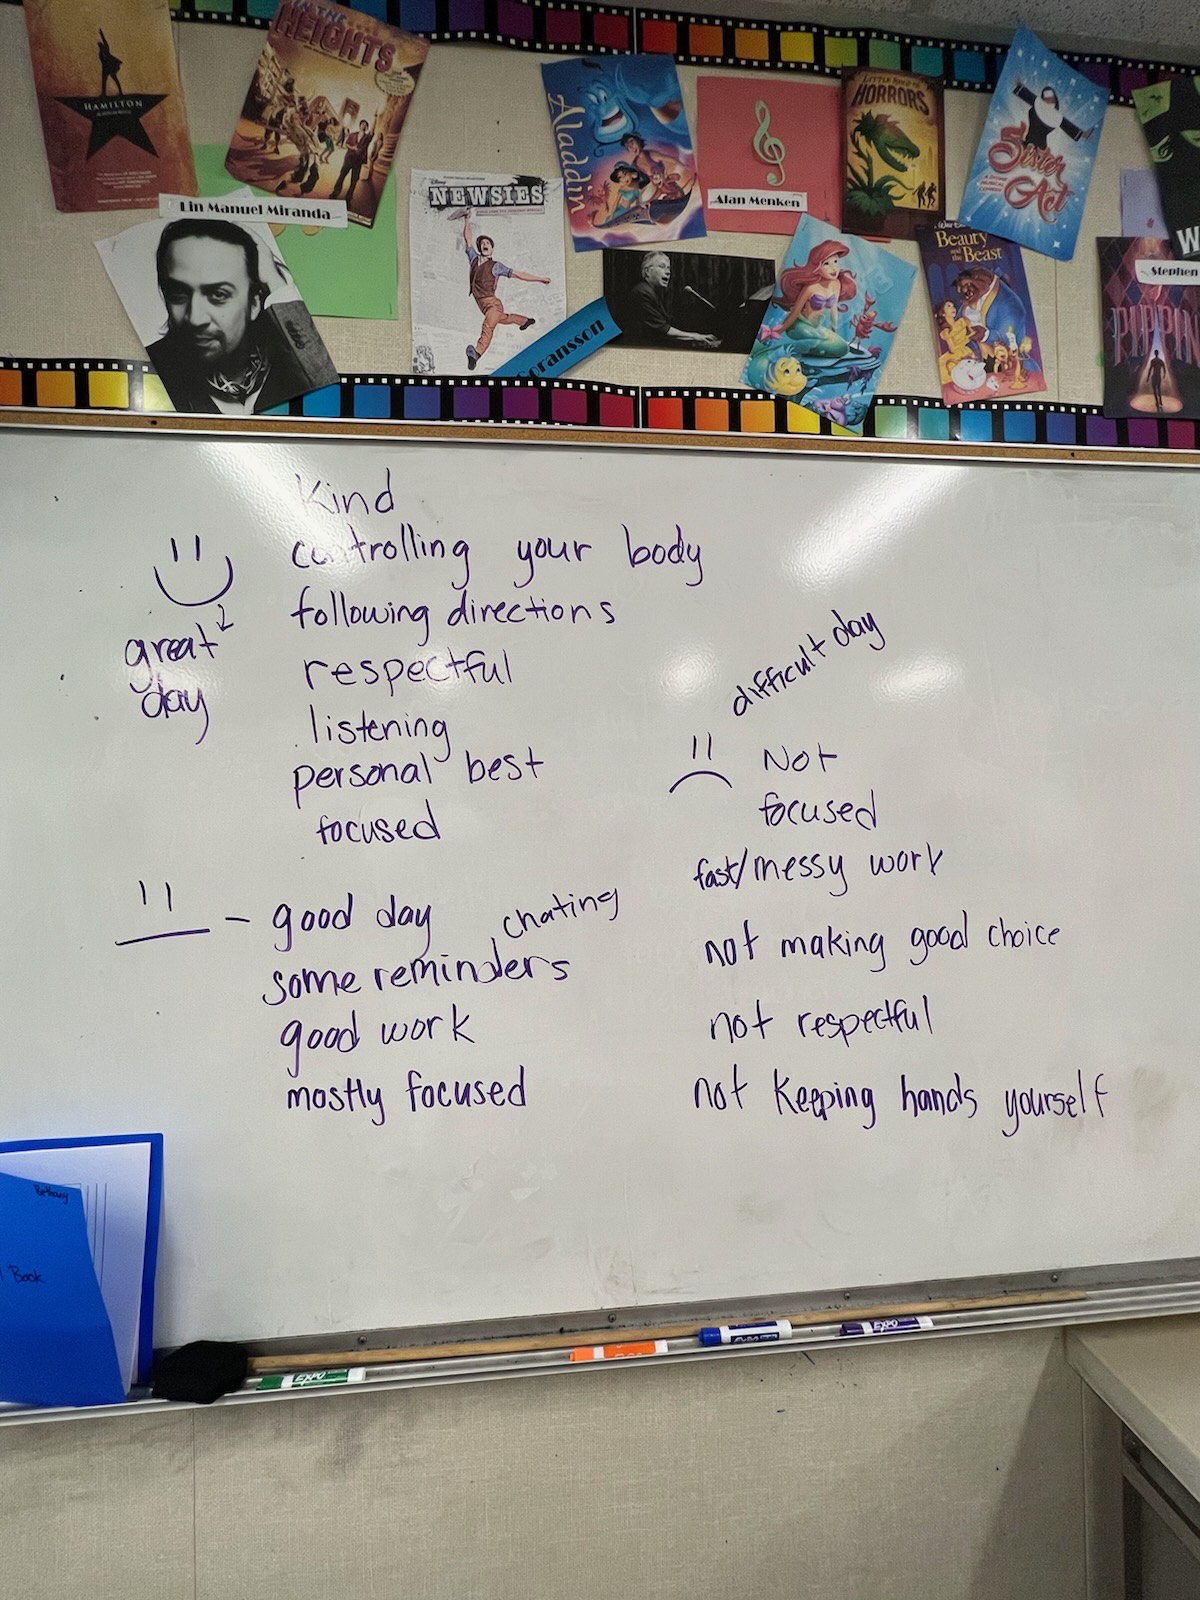 HAMILTON
IN THE
HEIGHTS
Lin Manuel Miranda
Disney
NEWSIES
Goransson
Aladdin
Alan Menken
LITTLE SHOP OF
HORRORS
Sister
Act
Beauty
and the
Beast
W
Stephen
PIPPIN
Kind
controlling your body
following directions
respectful
listening
personal best
focused
great
day
good day
chating
some reminders
good work
mostly focused
difficult day
Not
focused
fast/messy work
not making good choice
not respectful
not Keeping hands yourself
Bethany
Book
EXPO
EXPO
EXPO